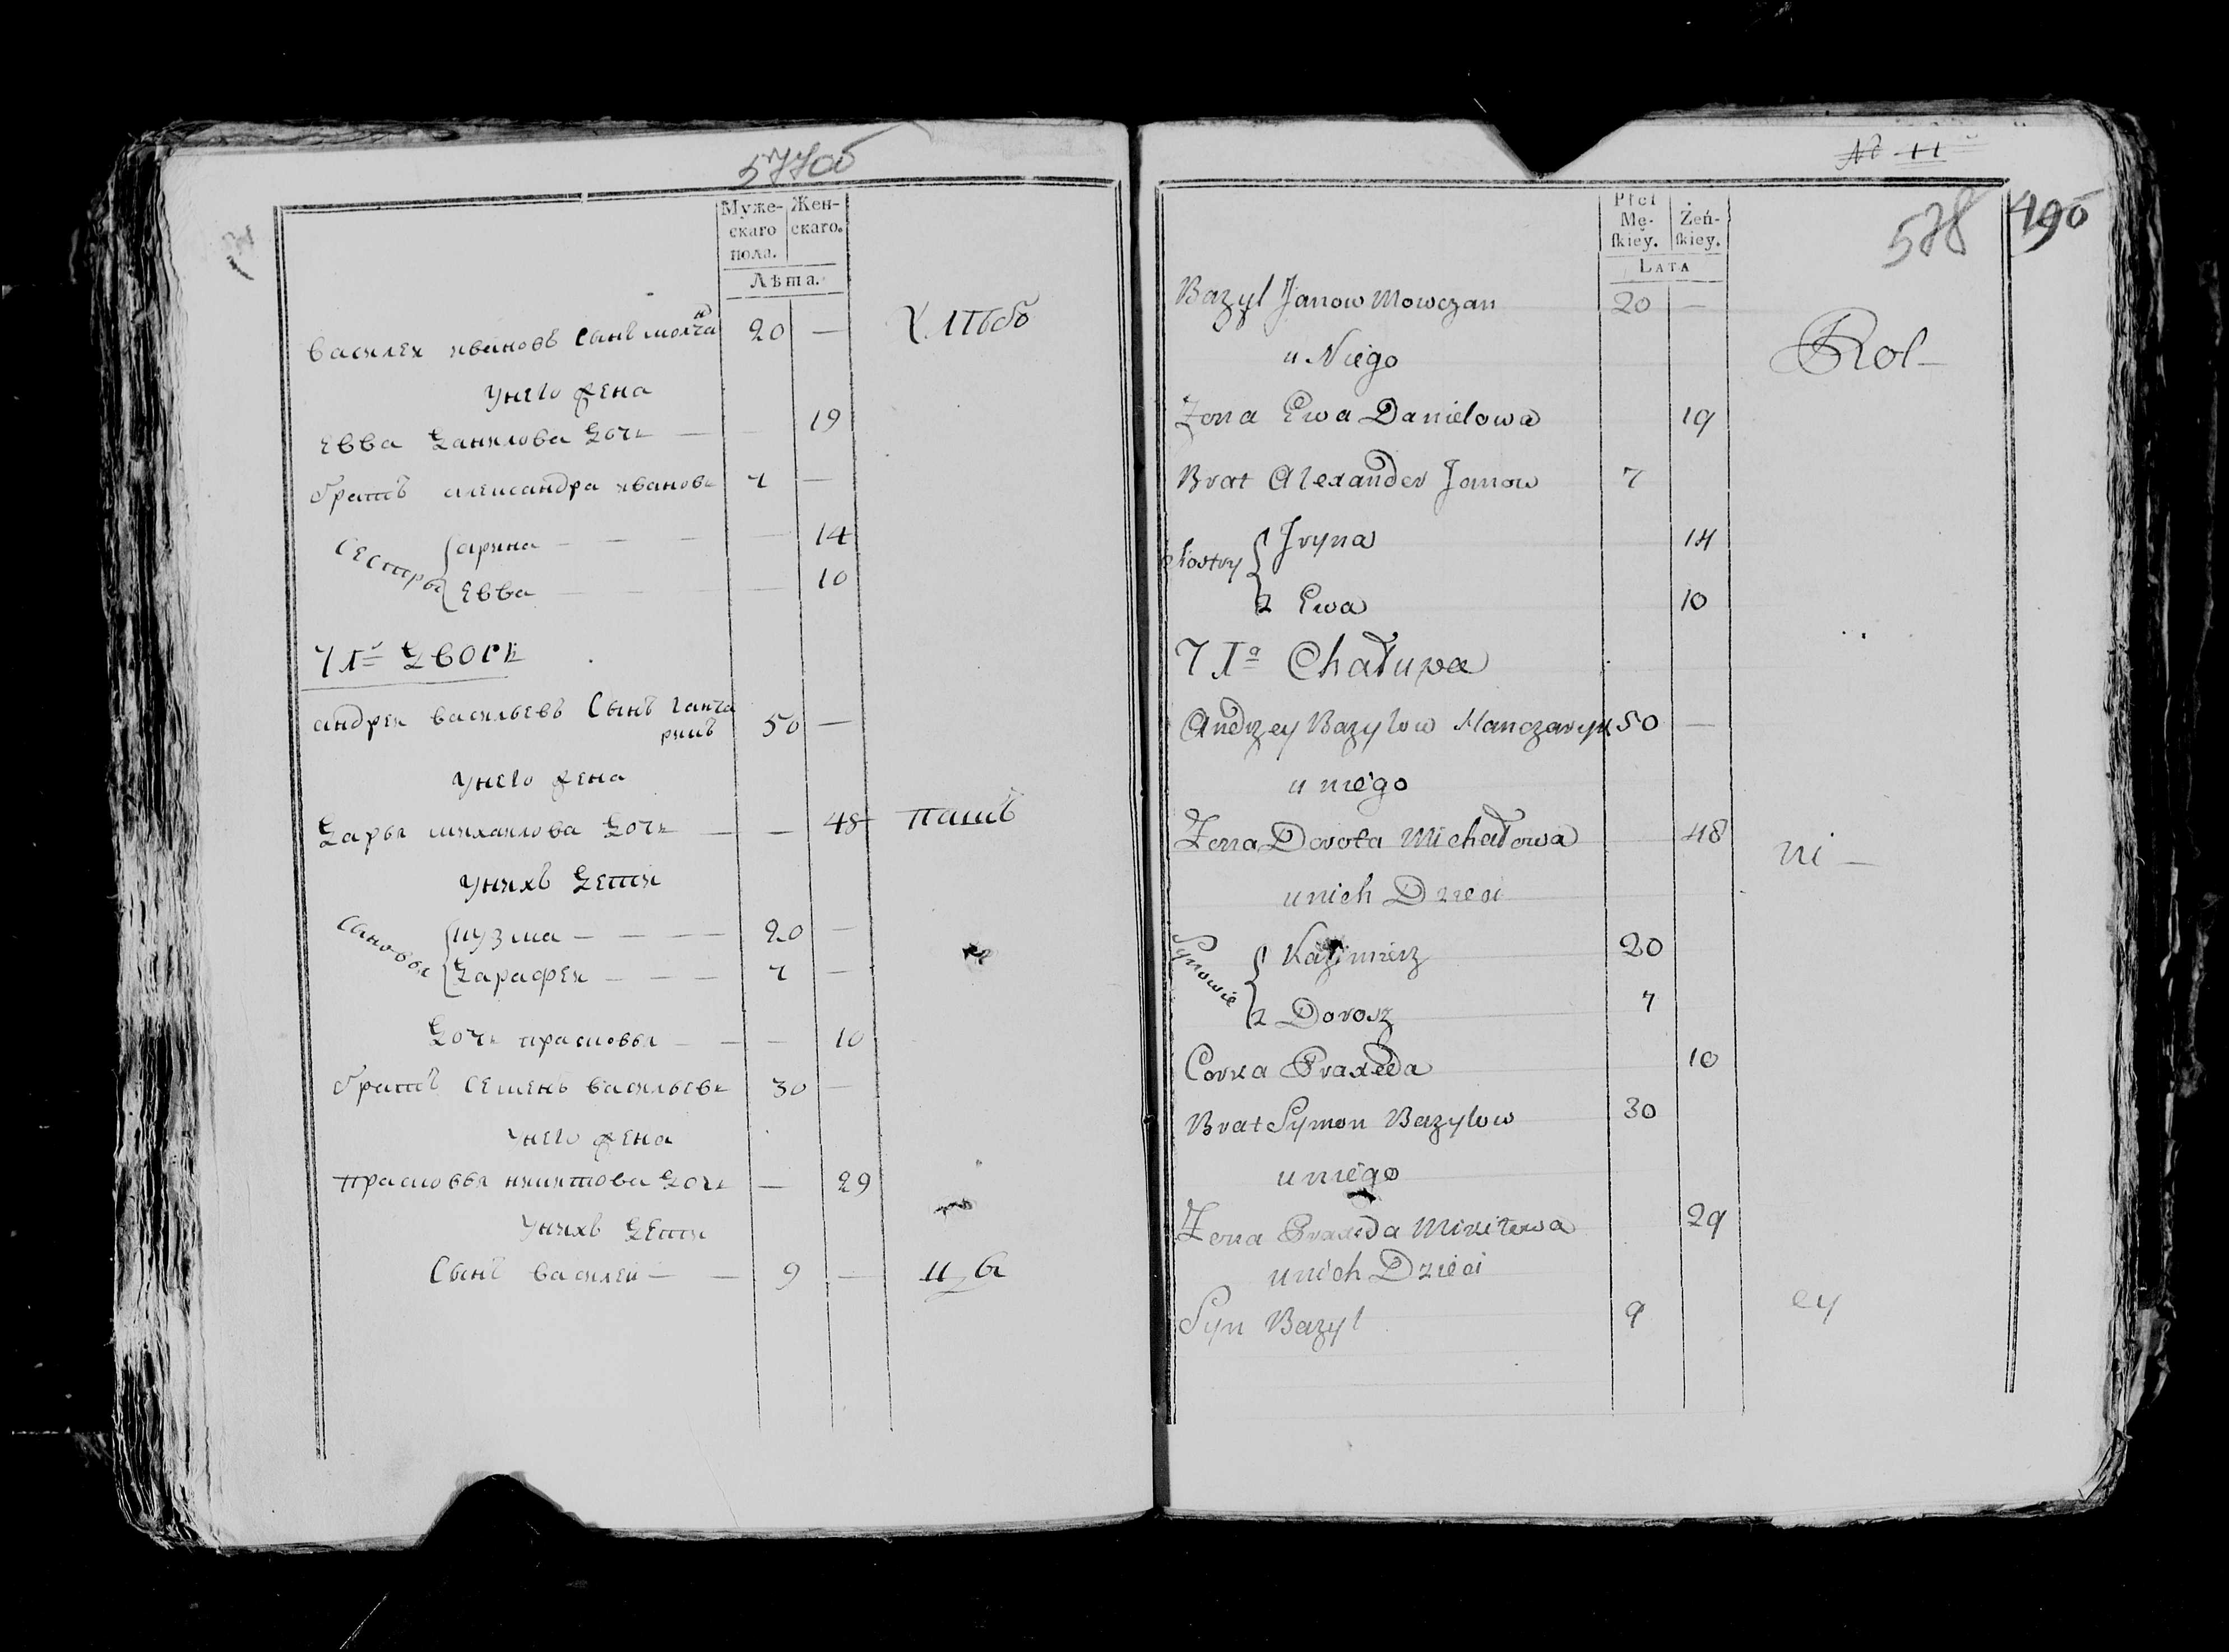 577об
Муже-
скаго
пола.
Жен-
скаго.
Лѣта.
Василей Иванов Сынъ молча 20 —
Хлѣбо
Унего жена
Евва Данилова дочь — — 19
братъ александра Иванова 7 —
Сестры
арина — — — — 14
Евва — — — — 10
7 дворъ
андрей васильевъ Сынъ ганча
ринъ 50 —
Унего жена
Дарья михаилова дочь — — 48
пашъ
Унихъ дети
Сановья
кузма — — — — 20 —
Дарафей — — — 7 —
дочь прасковья — — — 10
братъ Семенъ васильевъ 30 —
Унего жена
прасковья никитова дочь — 29
Унихъ дети
Сынъ василей — — 9 —
цы
№ 11
578
490
Płci
Mę-
ſkiey.
Żeń-
ſkiey.
LATA
Bazyl Janow Mowczan 20 —
Rol—
u Niego
Zona Ewa Danielowa 19
Brat Alexander Janow 7
Siostry
Jryna 14
2 Ewa 10
7 Chałupa
Andrzey Bazylow Hanczaryk 50 —
u niego
Zona Dorota Michałowa 48
ni —
unich Dzieci
Synowie
Kazimierz 20
2 Dorosz 7
Corka Praxeda 10
Brat Symon Bazylow 30
u niego
Zona Praxeda Mikitowa 29
unich Dzieci
ey
Syn Bazyl 9